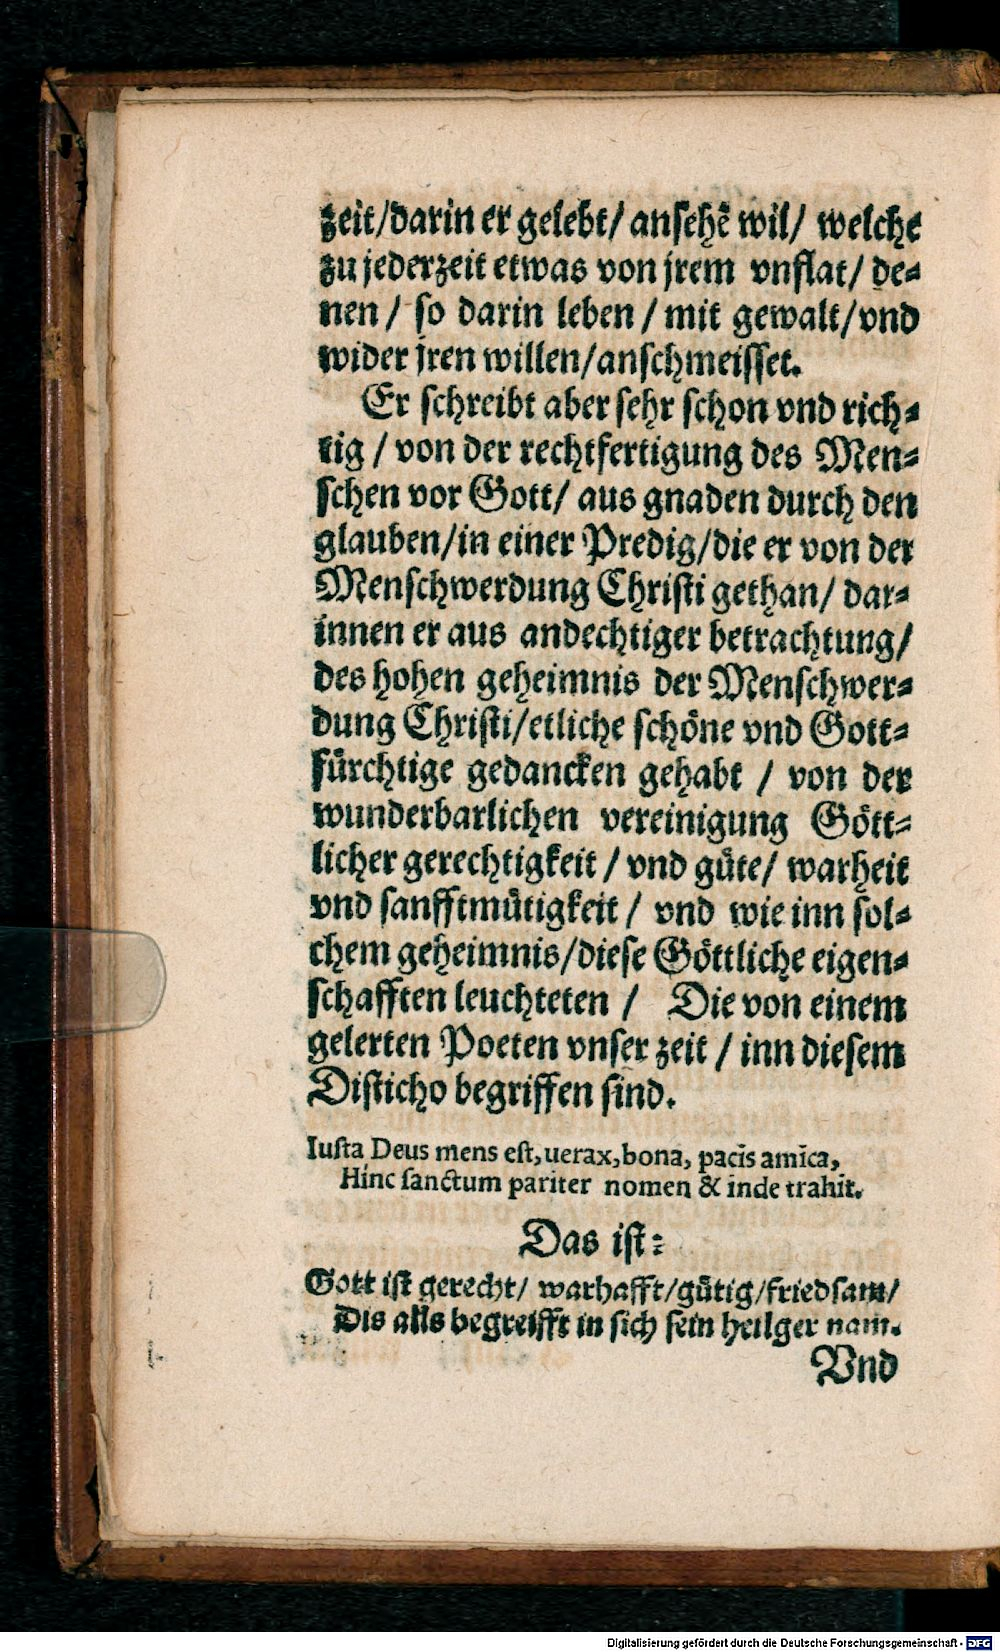 zeit/darin er gelebt/ ansehẽ wil/ welche
zu jederzeit etwas von jrem vnflat/ de⸗
nen / so darin leben / mit gewalt/vnd
wider jren willen/anschmeisset.
Er schreibt aber sehr schon vnd rich⸗
tig / von der rechtfertigung des Men⸗
schen vor Gott/ aus gnaden durch den
glauben/in einer Predig/die er von der
Menschwerdung Christi gethan/ dar⸗
innen er aus andechtiger betrachtung/
des hohen geheimnis der Menschwer⸗
dung Christi/etliche schöne vnd Gott⸗
fürchtige gedancken gehabt / von der
wunderbarlichen vereinigung Gött⸗
licher gerechtigkeit / vnd güte/ warheit
vnd sanfftmütigkeit / vnd wie inn sol⸗
chem geheimnis/diese Göttliche eigen⸗
schafften leuchteten / Die von einem
gelerten Poeten vnser zeit / inn diesem
Disticho begriffen sind.
Iusta Deus mens est, uerax, bona, pacis amica,
Hinc sanctum pariter nomen & inde trahit.
Das ist:
Gott ist gerecht/ warhafft/gütig/friedsam/
Dis alls begreifft in sich sein heilger nam.
Vnd
Digitalisierung gefördert durch die Deutsche Forschungsgemeinschaft - DFG